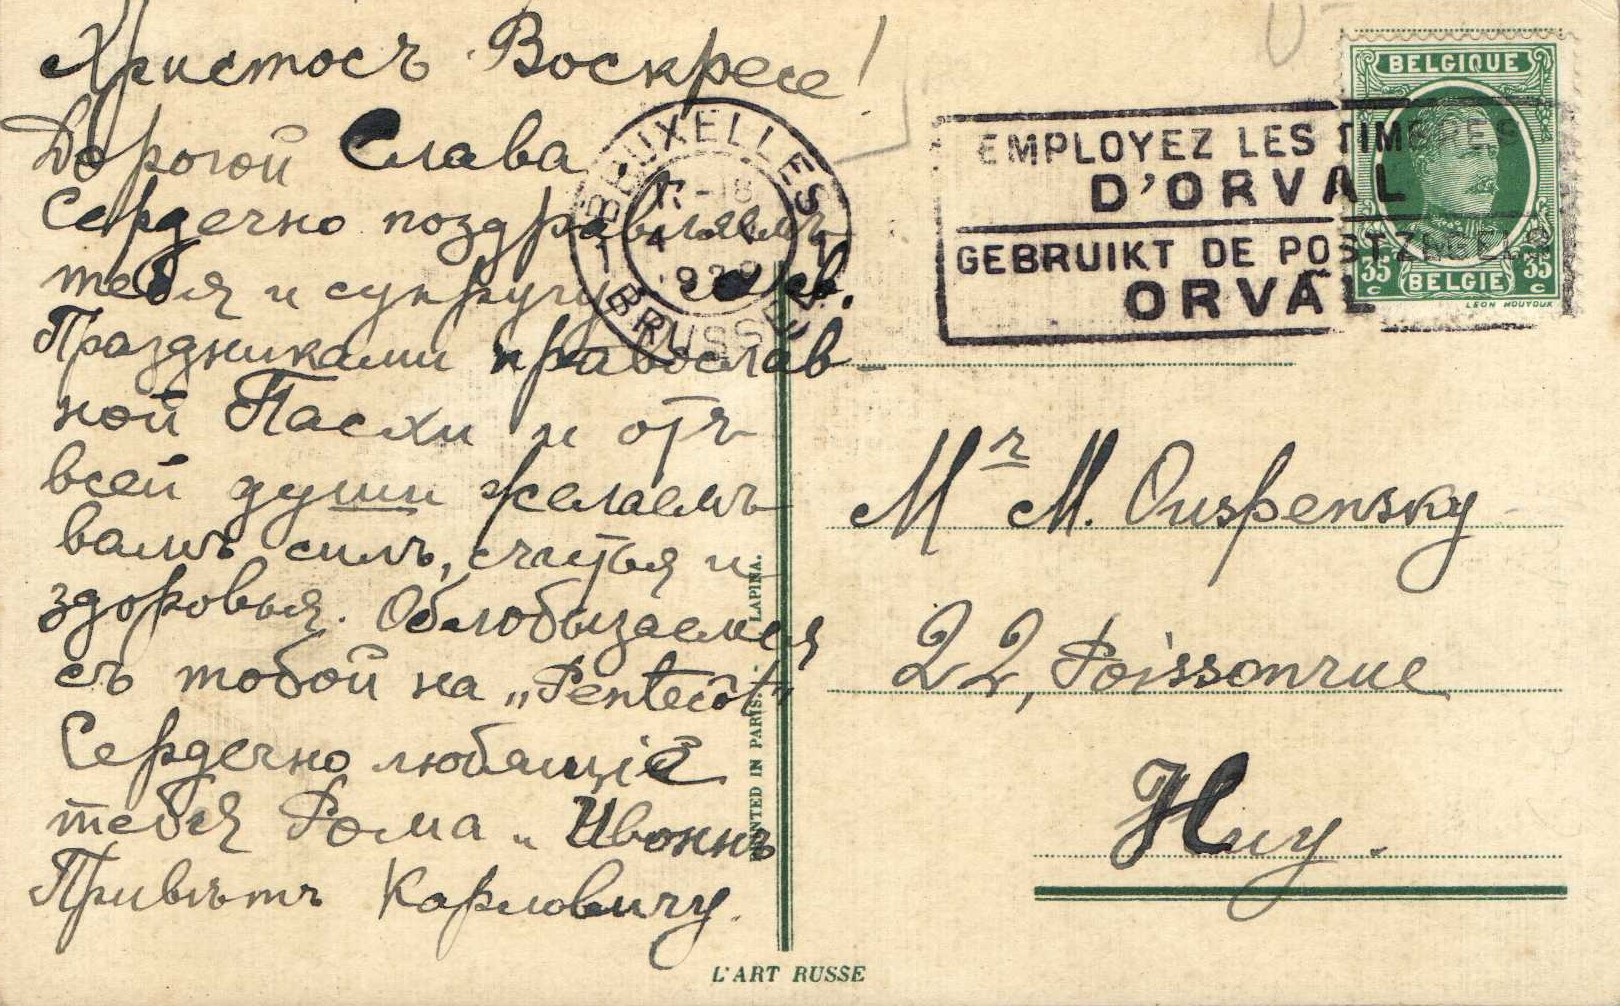 Христосъ Воскресе!
Дорогой Слава
Сердечно поздравляемъ
тебя и супругу со св.
Праздниками православ-
ной Пасхи и отъ
всей души желаемъ
вамъ силъ, счастья и
здоровья. Облобызаемся
съ тобой на „Pentecôt"
Сердечно любящіе
тебя Рома и Ивоннъ
Привѣтъ Карловичу.
BRUXELLES
17-18
BRUSSEL
EMPLOYEZ LES TIMBRES
D'ORVAL
GEBRUIKT DE POSTZEGELS
ORVAL
BELGIQUE
35c 35c
BELGIË
LEON HOUYOUX
Mr M. Ouspensky
22, Poissonrue
Huy.
PRINTED IN PARIS. - LAPINA.
L'ART RUSSE